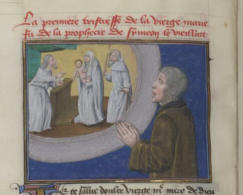 La premiere tristesse de la vierge marie
fu de la prophecie de symeon le vieillart
Je te salue doulce vierge m̄ mere de dieu